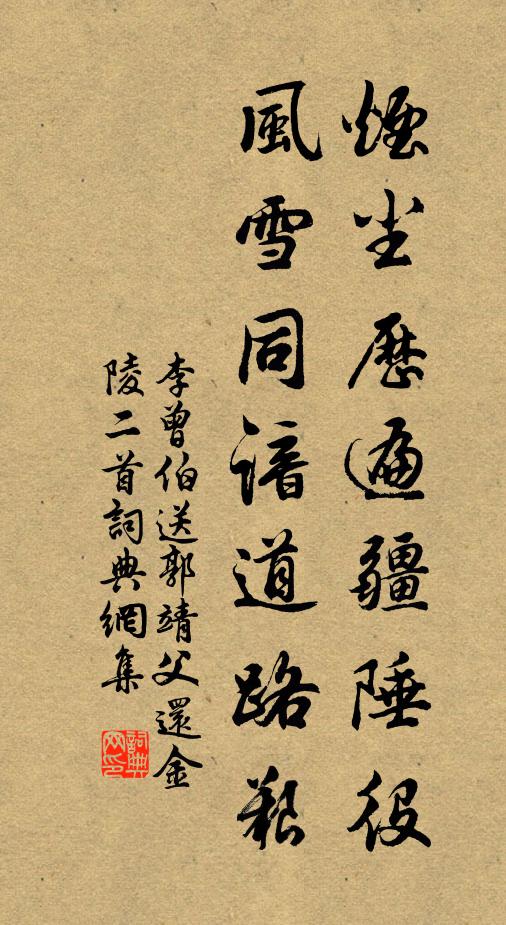 煙尘歷遍疆陲役
風雪同諳道路艱
李曾伯送郭靖父還金
陵二首詞典網集
詞典
网印